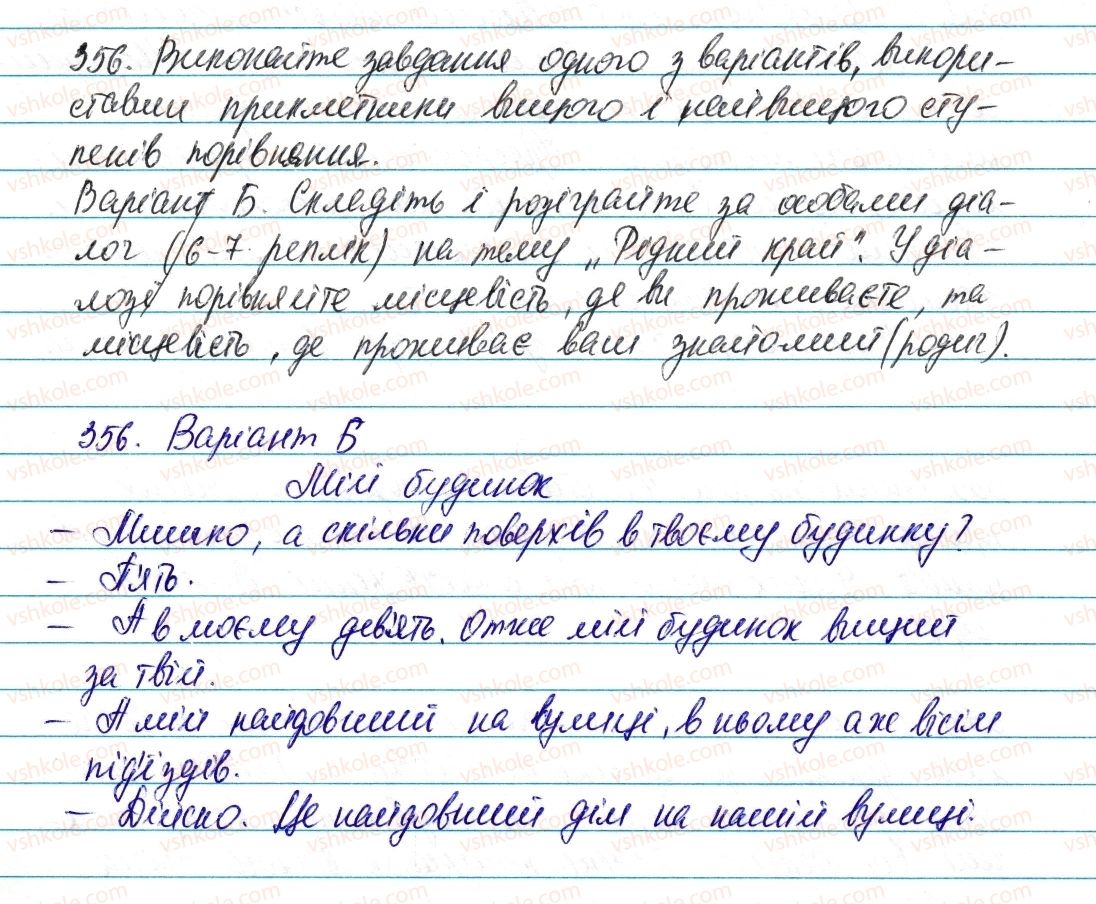 356. Виконайте завдання одного з варіантів, викори-
ставши прикметники вищого і найвищого сту-
пенів порівняння.
Варіант Б. Складіть і розіграйте за особами діа-
лог (6-7 реплік) на тему „Рідний край". У діа-
лозі порівняйте місцевість, де ви проживаєте, та
місцевість, де проживає ваш знайомий (родич).
356. Варіант Б
Мій будинок
– Мишко, а скільки поверхів в твоєму будинку?
– П'ять.
– А в моєму дев'ять. Отже мій будинок вищий
за твій.
– А мій найдовший на вулиці, в ньому аж вісім
під'їздів.
– Дійсно. Це найдовший дім на нашій вулиці.
vshkole.com